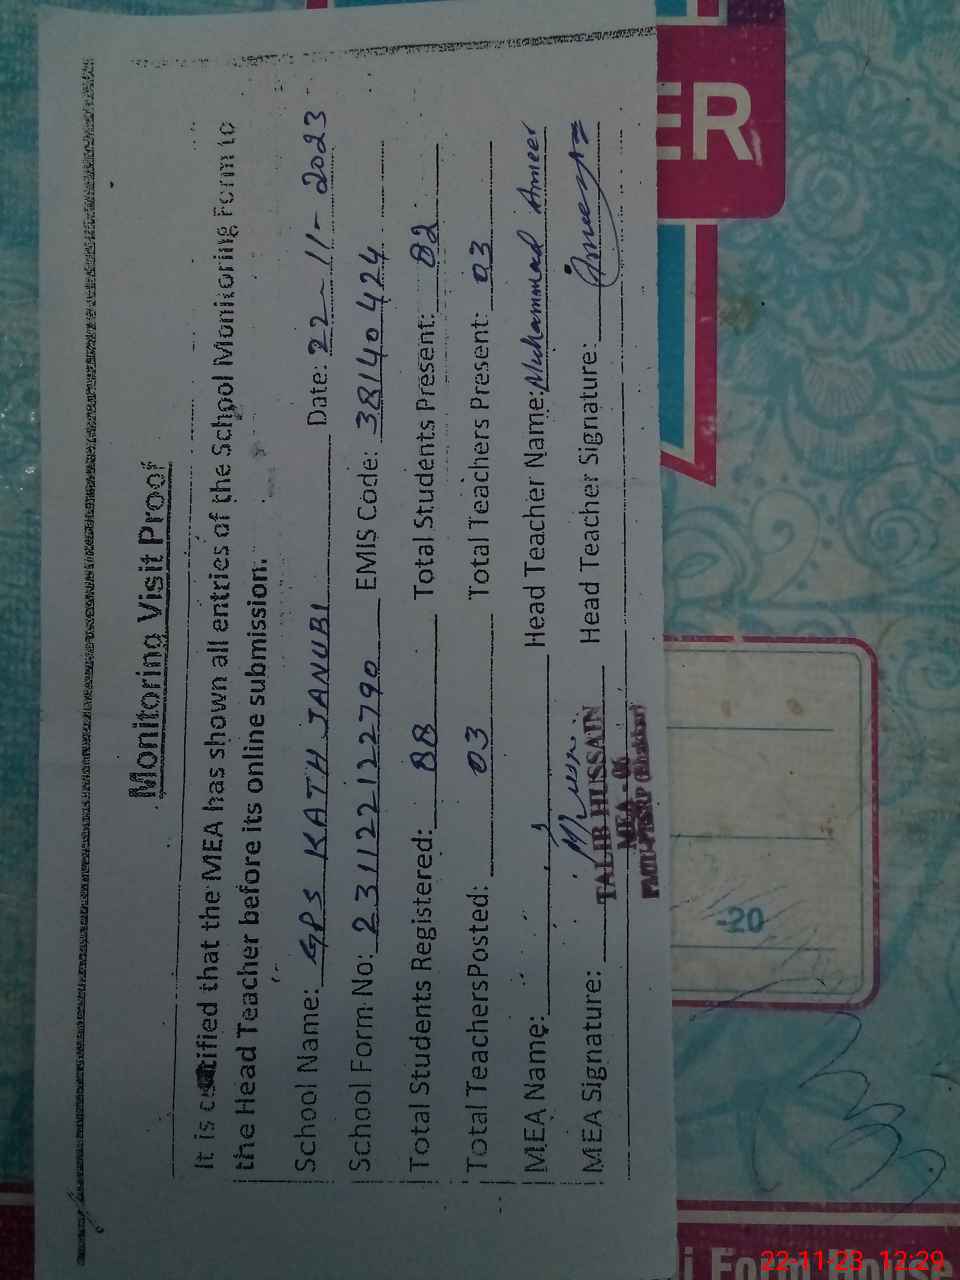 Monitoring Visit Proof
It is certified that the MEA has shown all entries of the School Monitoring Form to
the Head Teacher before its online submission.
School Name: GPS KATH JANUBI Date: 22-11-2023
School Form No: 231122122790 EMIS Code: 38140424
Total Students Registered: 88 Total Students Present: 82
Total Teachers Posted: 03 Total Teachers Present: 03
MEA Name: Head Teacher Name: Muhammad Ameer
MEA Signature: Head Teacher Signature:
TALIB HUSSAIN
MEA - 06
ER
-20
i Form House
22-11-23 12:29